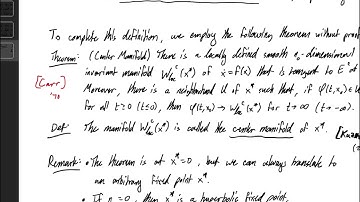 To complete this definition, we employ the following theorem without proof
Theorem: (Center Manifold) There is a locally defined smooth n₀-dimensional
invariant manifold W^c_loc(x*) of ẋ=f(x) that is tangent to E^c at
Moreover, there is a neighborhood U of x* such that, if φ(t,x₀)∈
for all t≥0 (t≤0), then φ(t,x₀) → W^c_loc(x*) for t→∞ (t→-∞).
[Carr]
Def: The manifold W^c_loc(x*) is called the center manifold of x*.
Remark: • The theorem is at x*=0, but we can always translate to
an arbitrary fixed point x*.
• If n₀=0, then x* is a hyperbolic fixed point.